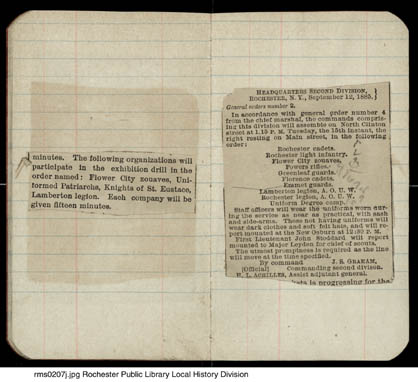 minutes. The following organizations will
participate in the exhibition drill in the
order named: Flower City zouaves, Uni-
formed Patriarchs, Knights of St. Eustace,
Lamberton legion. Each company will be
given fifteen minutes.
HEADQUARTERS SECOND DIVISION,
ROCHESTER, N. Y., September 12, 1885.
General orders number 2.
In accordance with general order number 4
from the chief marshal, the commands compris-
ing this division will assemble on North Clinton
street at 1.15 P. M. Tuesday, the 15th instant, the
right resting on Main street, in the following
order:
Rochester cadets.
Rochester light infantry.
Flower City zouaves.
Powers rifles.
Greenleaf guards.
Florence cadets.
Emmet guards.
Lamberton legion, A. O. U. W.
Rochester legion, A. O. U. W.
Uniform Degree camp.
Staff officers will wear the uniforms worn dur-
ing the service as near as practical, with sash
and side-arms. Those not having uniforms will
wear dark clothes and soft felt hats, and will re-
port mounted at the New Osburn at 12:30 P. M.
First Lieutenant John Stoddard will report
mounted to Major Leyden for chief of scouts.
The utmost promptness is required as the line
will move at the time specified.
By command J. S. GRAHAM,
[Official] Commanding second divison.
H. L. ACHILLES, Assist adjutant general.
is progressing for the
rms0207j.jpg Rochester Public Library Local History Division